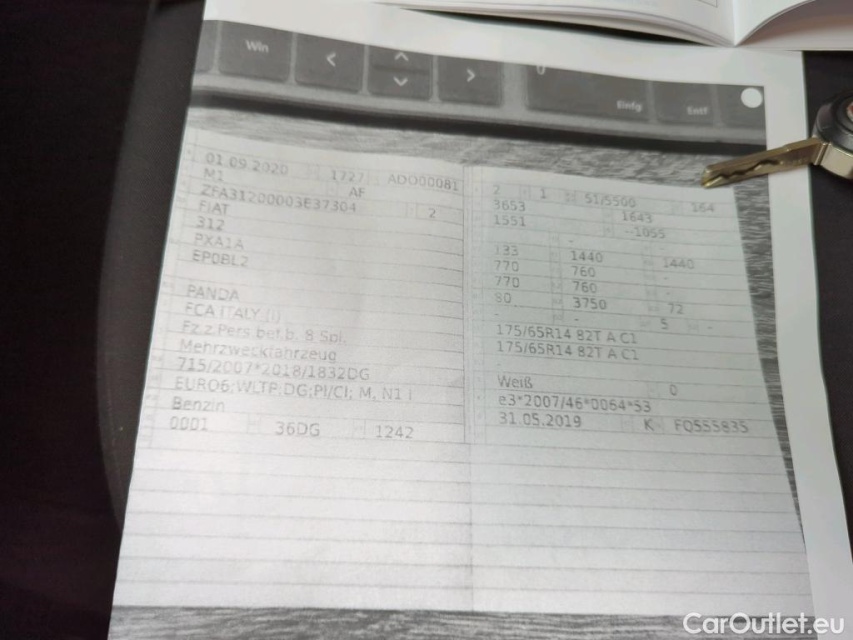 Win < ^ v > 0 Einfg Entf
01.09.2020 1727 ADO00081
M1 AF
ZFA31200003E37304 2
FIAT
312
PXA1A
EP0BL2
PANDA
FCA ITALY (I)
Fz.z.Pers.bef.b. 8 Spl.
Mehrzweckfahrzeug
715/2007*2018/1832DG
EURO6;WLTP;DG;PI/CI; M, N1 I
Benzin
0001 36DG 1242
2 1 51/5500 164
3653 1643
1551 --1055
133 1440 1440
770 760
770 760
80 3750 72
- - 5 -
175/65R14 82T A C1
175/65R14 82T A C1
Weiß 0
e3*2007/46*0064*53
31.05.2019 K FQ555835
CarOutlet.eu